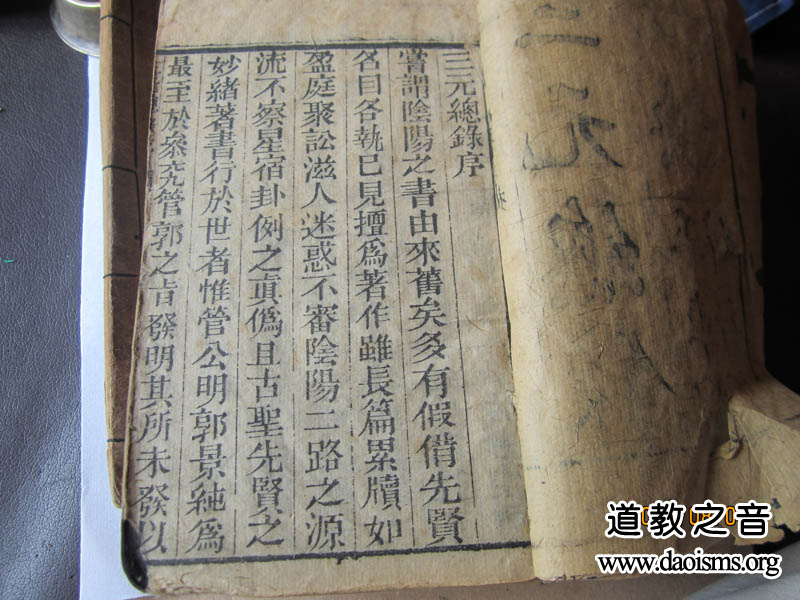 三元總錄序
嘗謂陰陽之書由來舊矣多有假借先賢
名目各執已見擅為著作雖長篇累牘如
盈庭聚訟滋人迷惑不審陰陽二路之源
流不察星宿卦例之真偽且古聖先賢之
妙緒著書行於世者惟管公明郭景純為
最至於叅究管郭之旨發明其所未發以
三元總
道教之音
www.daoisms.org